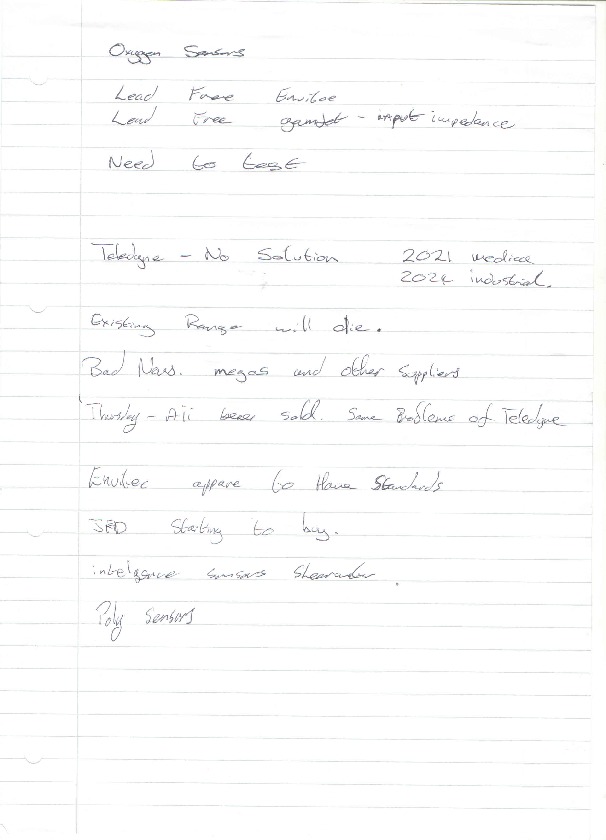 Oxygen Sensors
Lead Free Envitec
Lead Free - input impedance
Need to test
Teledyne - No Solution 2021 medical
2024 industrial.
Existing Range will die.
Bad News. megas and other Suppliers
Thursday - Aii been sold. Same Problems of Teledyne
Envitec appare to Have Standards
JFD Starting to buy.
sensors
Poly Sensors